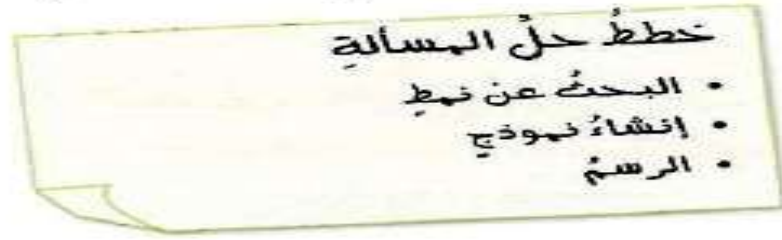 خططُ حلِّ المسألةِ
• البحثُ عن نمطٍ
• إنشاءُ نموذجٍ
• الرسمُ